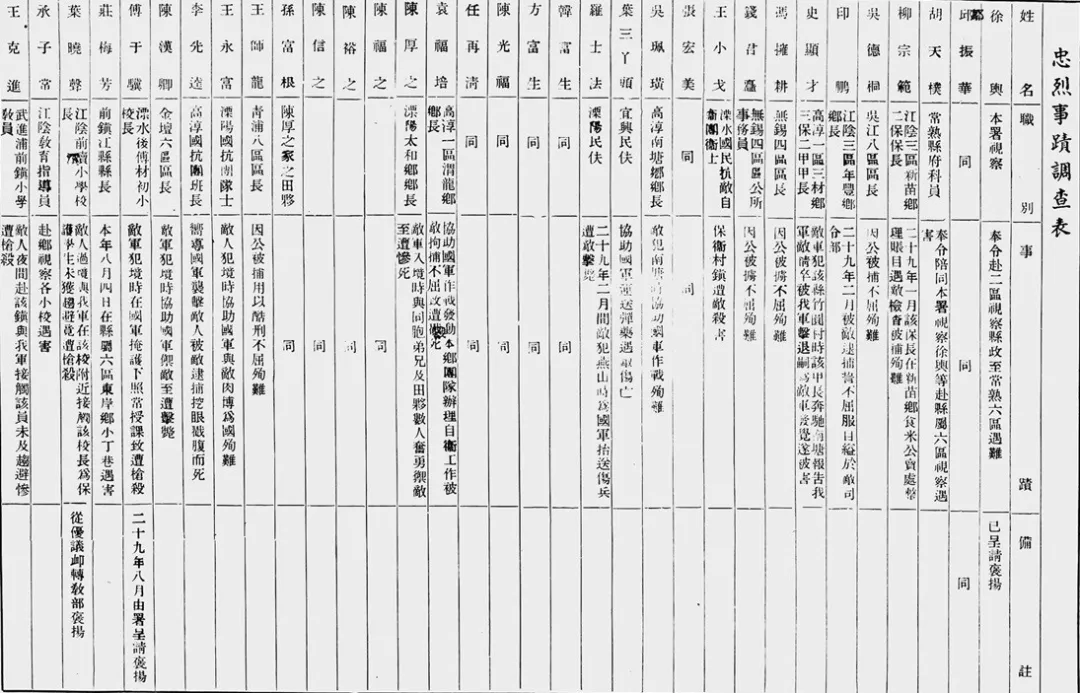 忠烈事蹟調查表
姓名 職別 事蹟 備註
徐輿 本署視察 奉令赴二區視察縣政至常熟六區遇難 已呈請褒揚
邱振華 同 同 同
胡天樸 常熟縣府科員 奉令陪同本署視察徐輿等赴縣屬六區視察遇害
柳宗範 江陰三區新苗鄉二保保長 二十九年一月該保長在新苗鄉食米公賣處整理賬目遇敵檢查被捕殉難
吳德桐 吳江八區區長 因公被捕不屈殉難
印鵬 江陰三區年豐鄉鄉長 二十九年二月被敵逮捕誓不屈服自縊於敵司令部
史顯才 高淳一區三材鄉三保二甲甲長 敵軍犯該縣竹園村時該甲長奔馳南塘報告我軍敵情卒被我軍擊退嗣為敵軍發覺遂被害
馮擁耕 無錫四區區長 因公被擄不屈殉難
錢君薹 無錫四區區公所事務員 因公被擄不屈殉難
王小戈 溧水國民抗敵自衛團衛士 保衛村鎮遭敵殺害
張宏美 同 同
吳珮璜 高淳南塘鄉鄉長 敵犯南塘時協助國軍作戰殉難
葉三丫頭 宜興民伕 協助國軍運送彈藥遇軍傷亡
羅士法 溧陽民伕 二十九年二月間敵犯燕山時為國軍抬送傷兵遭敵擊斃
韓富生 同 同
方富生 同 同
陳光福 同 同
任再清 同 同
袁福培 高淳一區渭龍鄉鄉長 協助國軍作戰發動本鄉團隊辦理自衛工作被敵拘捕不屈致遭敵死
陳厚之 溧陽太和鄉鄉長 敵軍入境時與同胞弟兄及田夥數人奮勇禦敵至遭慘死
陳福之 同
陳裕之 同
陳信之 同
孫富根 陳厚之家之田夥 同
王師龍 青浦八區區長 因公被捕用以酷刑不屈殉難
王永富 溧陽國抗團隊士 敵人犯境時協助國軍與敵肉博為國殉難
李先逵 高淳國抗團班長 嚮導國軍襲擊敵人被敵逮捕挖眼戳腹而死
陳漢卿 金壇六區區長 敵軍犯境時協助國軍禦敵至遭擊斃
傅于驥 溧水後傅材初小校長 敵軍犯境時在國軍掩護下照常授課致遭槍殺 二十九年八月由署呈請褒揚
莊梅芳 前鎮江縣縣長 本年八月四日在縣屬六區東岸鄉小丁巷遇害
葉曉聲 江陰前賣小學校長 敵人過境與我軍在該校附近接觸該校長為保護學生未獲趨避竟遭槍殺 從優議卹轉教部褒揚
承子常 江陰教育指導員 赴鄉視察各小校遇害
王克進 武進浦前鎮小學教員 敵人夜間赴該鎮與我軍接觸該員未及趨避慘遭槍殺